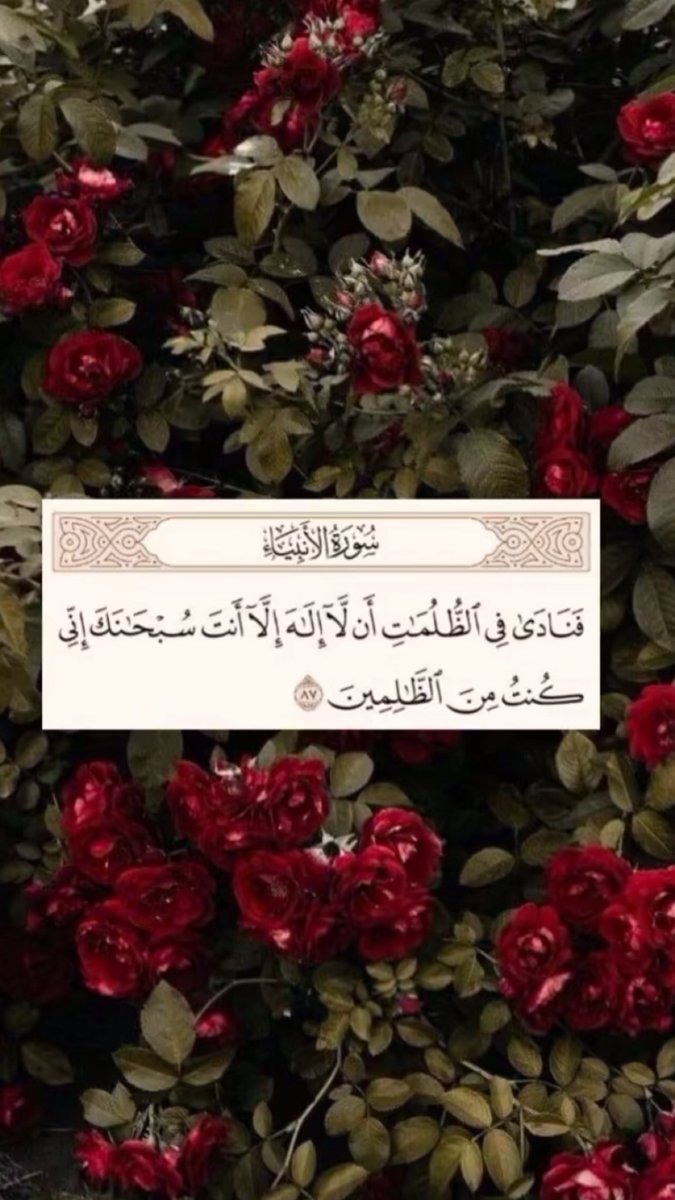 سُورَةُ الأَنبِيَاءِ
فَنَادَىٰ فِي ٱلظُّلُمَٰتِ أَن لَّآ إِلَٰهَ إِلَّآ أَنتَ سُبْحَٰنَكَ إِنِّي
كُنتُ مِنَ ٱلظَّٰلِمِينَ ٨٧